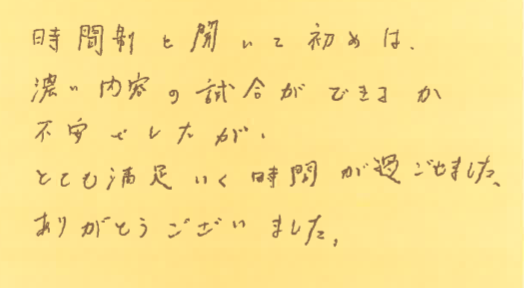 時間制と聞いて初めは、
濃い内容の試合ができるか
不安でしたが、
とても満足いく時間が過ごせました、
ありがとうございました。